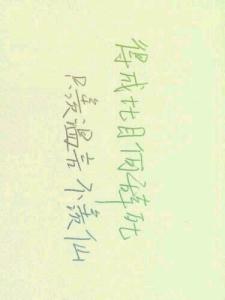 得成比目何辞死
只羡鸳鸯不羡仙